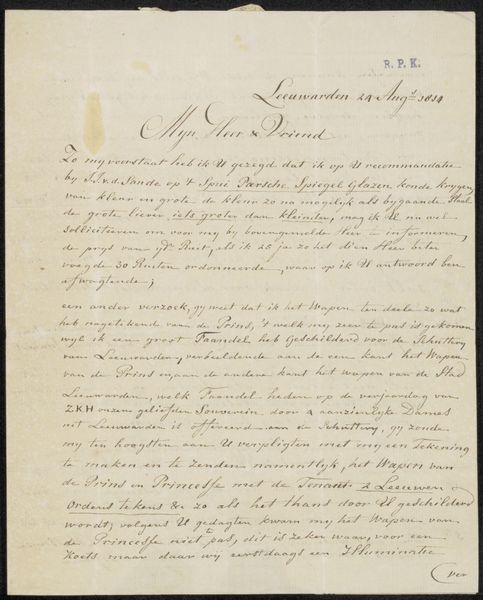 R. P. K.
Leeuwarden 24 Augt. 1814
Myn Heer & Vriend
Zo my voorstaat heb ik U gezegd dat ik op U recommandatie
by J. J. v. d. Sande op 't Spui Parsche Spiegel Glazen konde krygen,
van kleur en grote de kleur zo na mogelyk als bygaande Staal
de grote liever iets groter dan kleinder, mag ik U nu wel
solliciteren om voor my by bovengemelde Heer te informeren,
de prys van yder Ruit, als ik 20 ja zo het dien Heer beter
voegde 30 Ruiten ordonneerde, waar op ik U antwoord ben
afwagtende;
een ander verzoek, gy weet dat ik het Wapen ten deele zo wat
heb nagetekend van de Prins, 't welk my zeer te pas is gekomen
wyl ik een groot Faandel heb Geschilderd voor de Schuttery
van Leeuwarden, verbeeldende aan de eene kant het Wapen
van de Prins en aan de andere kant het wapen van de Stad
Leeuwarden, welk Faandel heden op de verjaardag van
ZKH onzen geliefden Souverein door 4 aanzienlyke Dames
uit Leeuwarden is offereerd aan de Schuttery, gy zoude
my ten hoogsten aan U verpligten met my een Tekening
te maken en te zenden namentlyk, het Wapen van
de Prins en Princesse met de Tenant 2 Leeuwen
Ordens tekens & zo als het thans door U geschilderd
wordt, volgens U gedagten kwam my het Wapen van
de Princesse niet te pas, dit is zeker waar, voor een
Koets maar daar wy eerstdaags een Illuminatie
ver